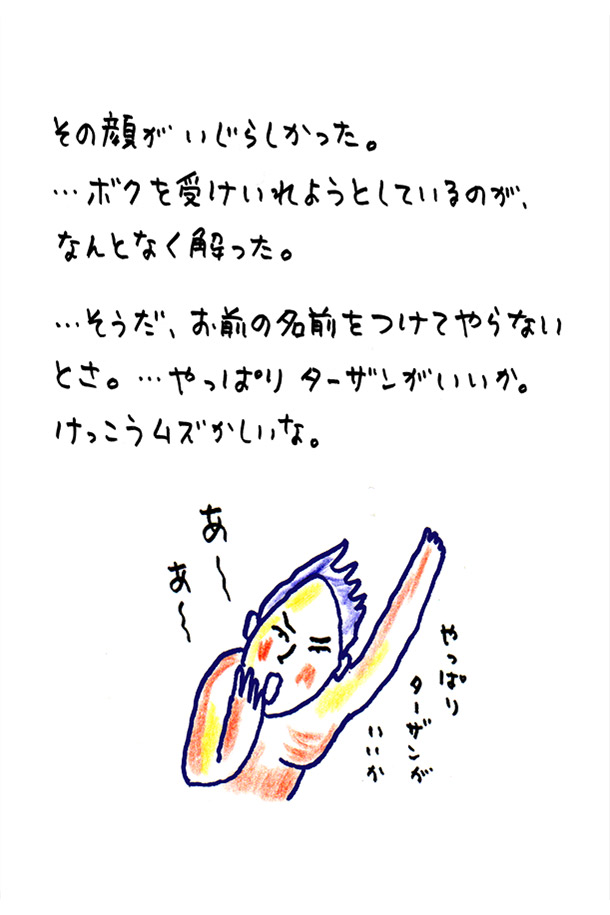 その顔がいじらしかった。
…ボクを受けいれようとしているのが、
なんとなく解った。
…そうだ、お前の名前をつけてやらない
とさ。…やっぱりターザンがいいか。
けっこうムズかしいな。
あ〜
あ〜
やっぱり
ターザンが
いいか